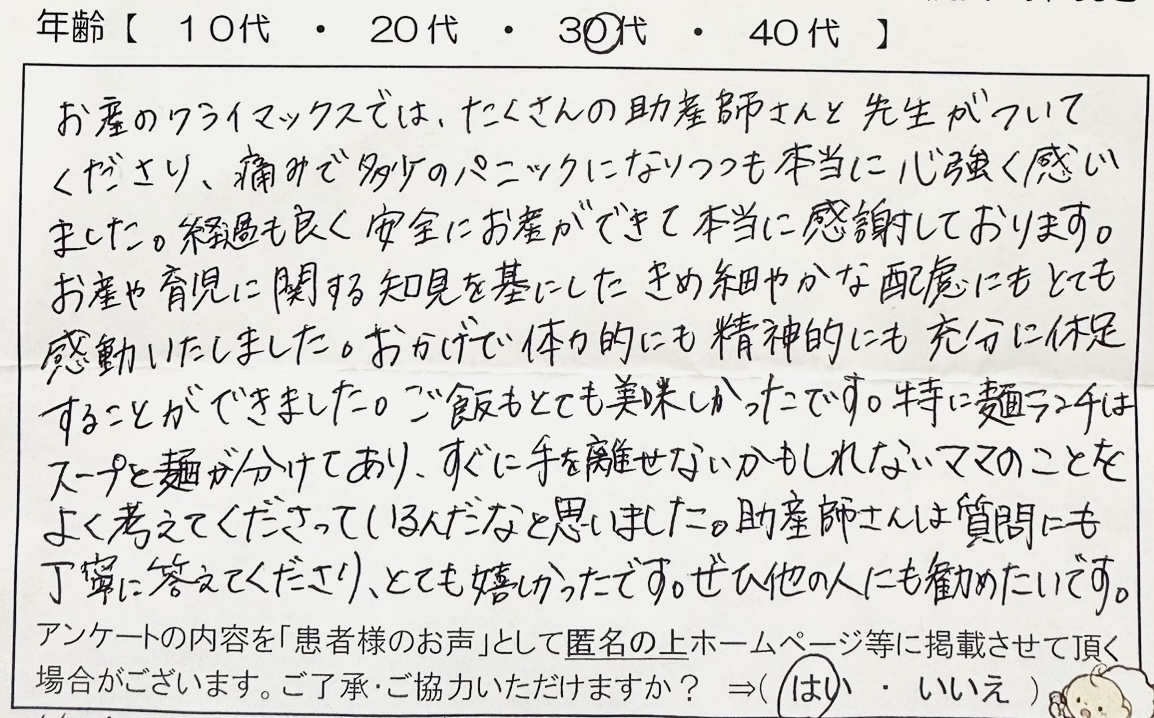 年齢【 10代 ・ 20代 ・ 30代 ・ 40代 】
お産のクライマックスでは、たくさんの助産師さんと先生がついて
くださり、痛みで多少のパニックになりつつも本当に心強く感じ
ました。経過も良く安全にお産ができて本当に感謝しております。
お産や育児に関する知見を基にしたきめ細やかな配慮にもとても
感動いたしました。おかげで体力的にも精神的にも充分に休足
することができました。ご飯もとても美味しかったです。特に麺ランチは
スープと麺が分けてあり、すぐに手を離せないかもしれないママのことを
よく考えてくださっているんだなと思いました。助産師さんは質問にも
丁寧に答えてくださり、とても嬉しかったです。ぜひ他の人にも勧めたいです。
アンケートの内容を「患者様のお声」として匿名の上ホームページ等に掲載させて頂く
場合がございます。ご了承・ご協力いただけますか？ ⇒( はい ・ いいえ )